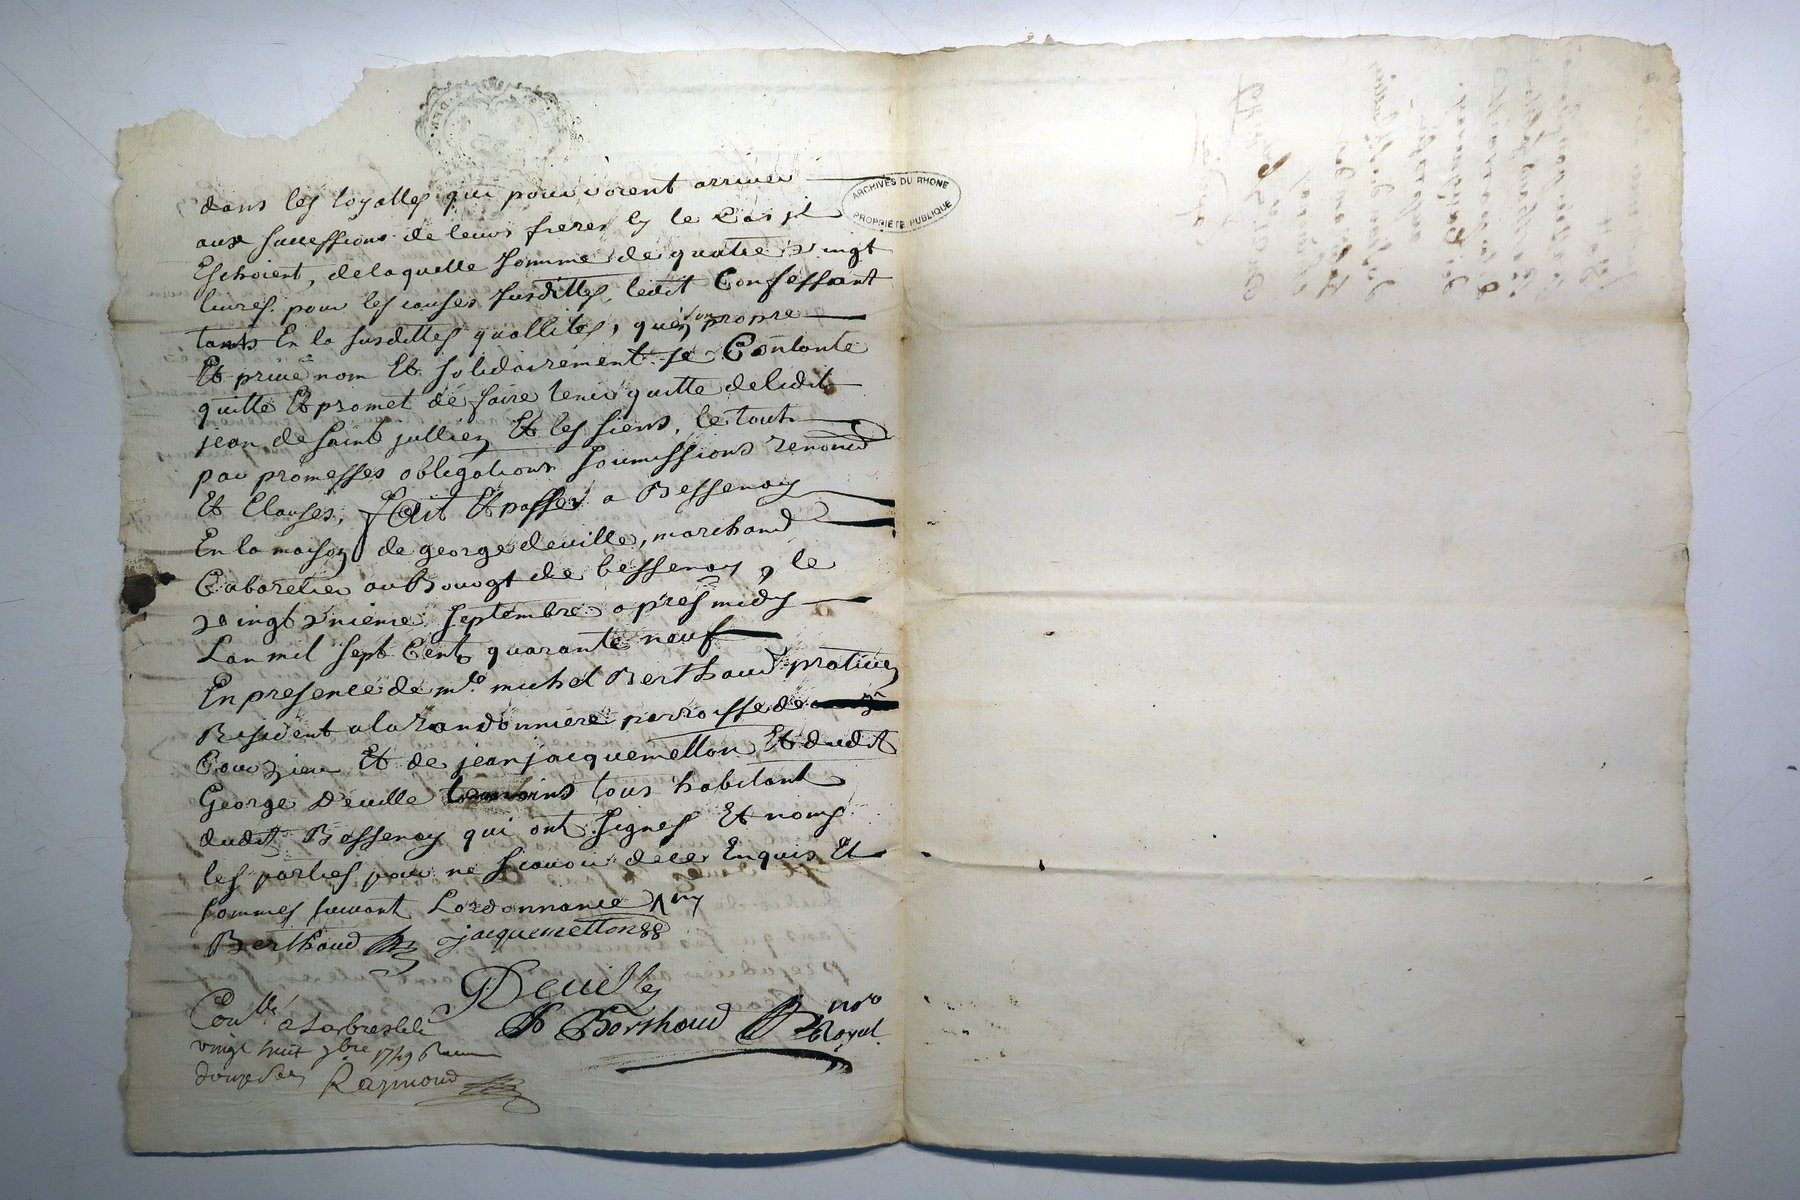 dans les loyalles qui pouvoient arriver
aux successions de leurs freres sy le cas yl
Eschoient, de laquelle somme de quatre vingt
livres pour les causes susdittes, ledit Confessant
tants En la susdittes quallites, quen son propre
Et privé nom Et solidairement se Contante
quitte Et promet de faire tenir quitte deledit
jean de saint jullien Et les siens, le tout
par promesses obligations soumissions renond
Et Clauses, fait Et passé a Bessenay
En la maison de george deville, marchand
Cabaretier au Bourgt de bessenay, le
vingt unieme septembre apres midy
Lan mil sept Cents quarante neuf
En presence de mre michel Berthaud praticien
Resident a la randonniere parroisse de
Courzieu Et de jean jacquemetton Et dudit
George Deville temoins tous habitant
dudit Bessenay qui ont signes Et nomy
les parties pour ne scavoir de ce Enquis Et
sommes suivant Lordonnance
Berthaud jacquemetton
Deville
Berthaud nore Royal
Conllé a Larbresle le
vingt huit 7bre 1749
douze sols Raymond
ARCHIVES DU RHONE
PROPRIÉTÉ PUBLIQUE